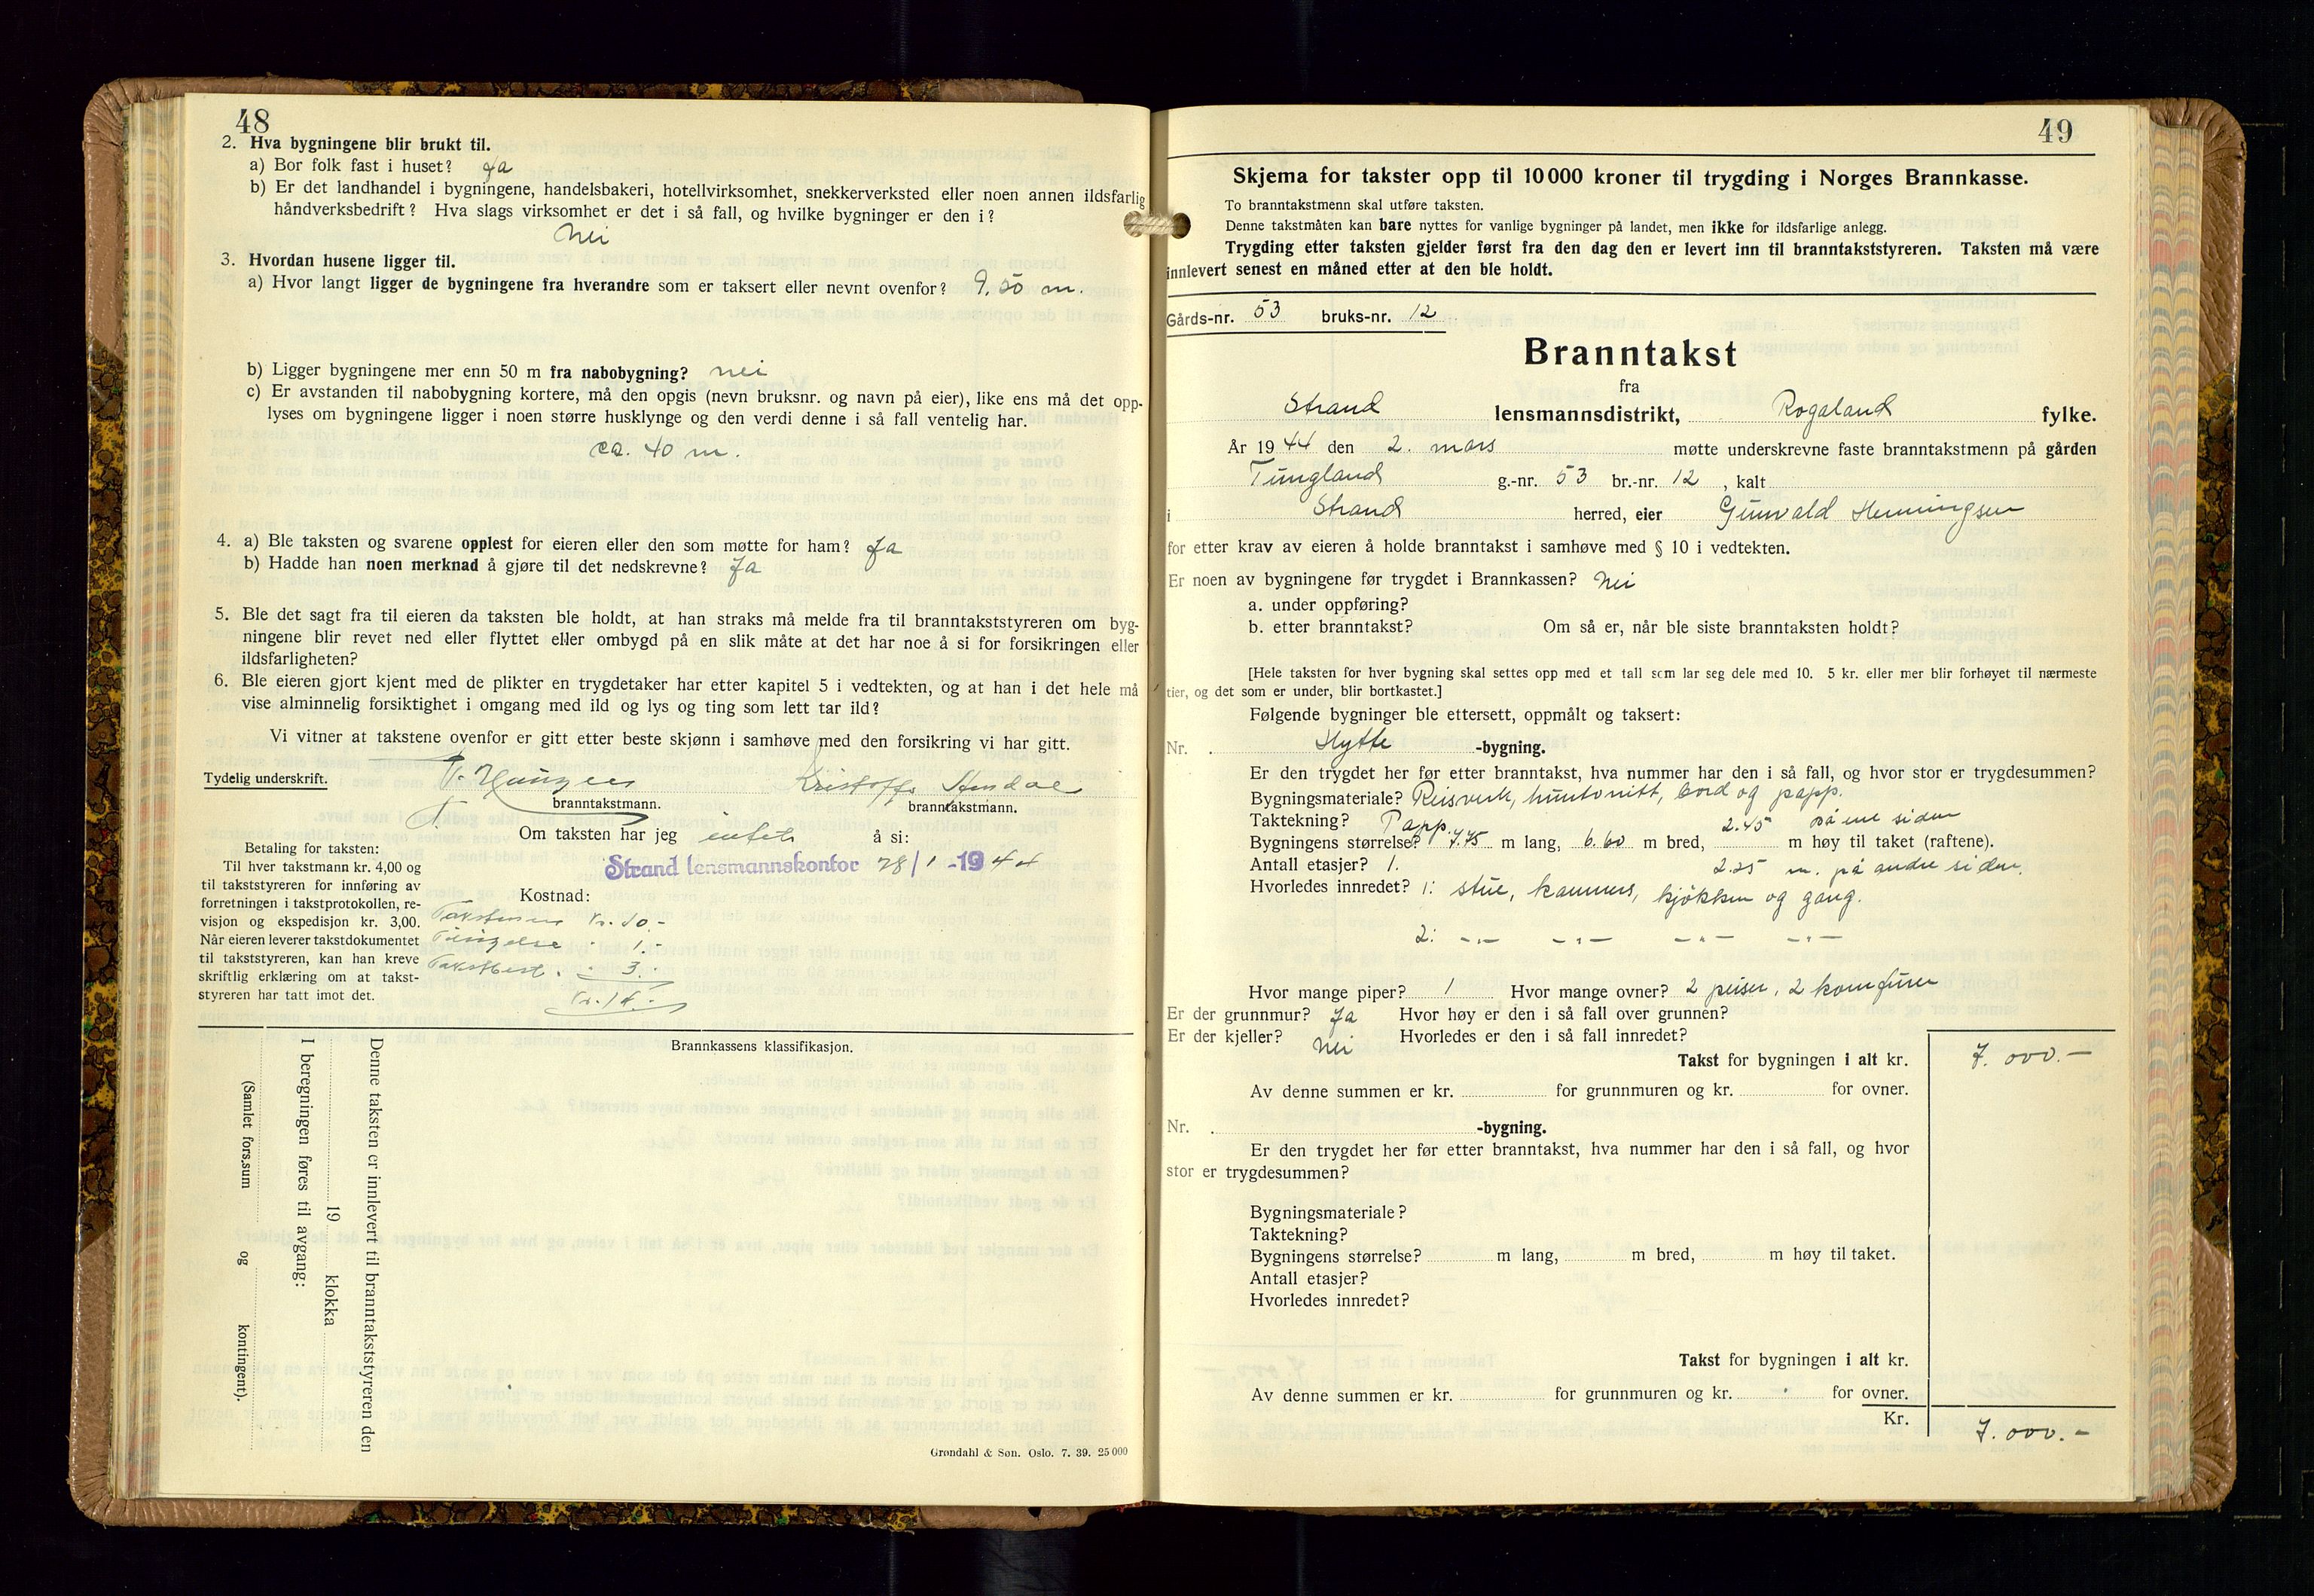 48
2. Hva bygningene blir brukt til.
a) Bor folk fast i huset? Ja
b) Er det landhandel i bygningene, handelsbakeri, hotellvirksomhet, snekkerverksted eller noen annen ildsfarlig
håndverksbedrift? Hva slags virksomhet er det i så fall, og hvilke bygninger er den i?
Nei
3. Hvordan husene ligger til.
a) Hvor langt ligger de bygningene fra hverandre som er taksert eller nevnt ovenfor? 9.50 m.
b) Ligger bygningene mer enn 50 m fra nabobygning? nei
c) Er avstanden til nabobygning kortere, må den opgis (nevn bruksnr. og navn på eier), like ens må det opp-
lyses om bygningene ligger i noen større husklynge og den verdi denne i så fall ventelig har.
ca. 40 m.
4. a) Ble taksten og svarene opplest for eieren eller den som møtte for ham? Ja
b) Hadde han noen merknad å gjøre til det nedskrevne? Ja
5. Ble det sagt fra til eieren da taksten ble holdt, at han straks må melde fra til branntakststyreren om byg-
ningene blir revet ned eller flyttet eller ombygd på en slik måte at det har noe å si for forsikringen eller
ildsfarligheten?
6. Ble eieren gjort kjent med de plikter en trygdetaker har etter kapitel 5 i vedtekten, og at han i det hele må
vise alminnelig forsiktighet i omgang med ild og lys og ting som lett tar ild?
Vi vitner at takstene ovenfor er gitt etter beste skjønn i samhøve med den forsikring vi har gitt.
Tydelig underskrift.
branntakstmann. branntakstmann.
Om taksten har jeg intet å si:
Strand lensmannskontor 28/1 -1944
Betaling for taksten:
Til hver takstmann kr. 4,00 og
til takststyreren for innføring av
forretningen i takstprotokollen, re-
visjon og ekspedisjon kr. 3,00.
Når eieren leverer takstdokumentet
til takststyreren, kan han kreve
skriftlig erklæring om at takst-
styreren har tatt imot det.
Kostnad:
Takstmenn Kr. 10.-
" 1.-
Takstbest. " 3.-
Kr. 14.-
Brannkassens klassifikasjon.
Denne taksten er innlevert til branntakststyreren den
19 klokka
I beregningen føres til avgang:
(Samlet fors.sum og kontingent).
Grøndahl & Søn. Oslo. 7. 39. 25 000
49
Skjema for takster opp til 10 000 kroner til trygding i Norges Brannkasse.
To branntakstmenn skal utføre taksten.
Denne takstmåten kan bare nyttes for vanlige bygninger på landet, men ikke for ildsfarlige anlegg.
Trygding etter taksten gjelder først fra den dag den er levert inn til branntakststyreren. Taksten må være
innlevert senest en måned etter at den ble holdt.
Gårds-nr. 53 bruks-nr. 12
Branntakst
fra
Strand lensmannsdistrikt, Rogaland fylke.
År 1944 den 2. mars møtte underskrevne faste branntakstmenn på gården
Tungland g.-nr. 53 br.-nr. 12, kalt
i Strand herred, eier Gunvald Henningsen
for etter krav av eieren å holde branntakst i samhøve med § 10 i vedtekten.
Er noen av bygningene før trygdet i Brannkassen? Nei
a. under oppføring?
b. etter branntakst? Om så er, når ble siste branntaksten holdt?
[Hele taksten for hver bygning skal settes opp med et tall som lar seg dele med 10. 5 kr. eller mer blir forhøyet til nærmeste
tier, og det som er under, blir bortkastet.]
Følgende bygninger ble ettersett, oppmålt og taksert:
Nr. Hytte -bygning.
Er den trygdet her før etter branntakst, hva nummer har den i så fall, og hvor stor er trygdesummen?
Bygningsmateriale? Reisverk, huntonitt, bord og papp.
Taktekning? Papp. 2.45 på ene siden
Bygningens størrelse? 7.75 m lang, 6.60 m bred, m høy til taket (raftene).
Antall etasjer? 1. 2.25 m. på andre siden.
Hvorledes innredet? 1: stue, kammers, kjøkken og gang.
2: -"- -"- -"- -"-
Hvor mange piper? 1 Hvor mange ovner? 2 peiser, 2 komfurer
Er der grunnmur? Ja Hvor høy er den i så fall over grunnen?
Er der kjeller? Nei Hvorledes er den i så fall innredet?
Takst for bygningen i alt kr. 7.000.-
Av denne summen er kr. for grunnmuren og kr. for ovner.
Nr. -bygning.
Er den trygdet her før etter branntakst, hva nummer har den i så fall, og hvor
stor er trygdesummen?
Bygningsmateriale?
Taktekning?
Bygningens størrelse? m lang, m bred, m høy til taket.
Antall etasjer?
Hvorledes innredet?
Takst for bygningen i alt kr.
Av denne summen er kr. for grunnmuren og kr. for ovner.
Kr. 7.000.-